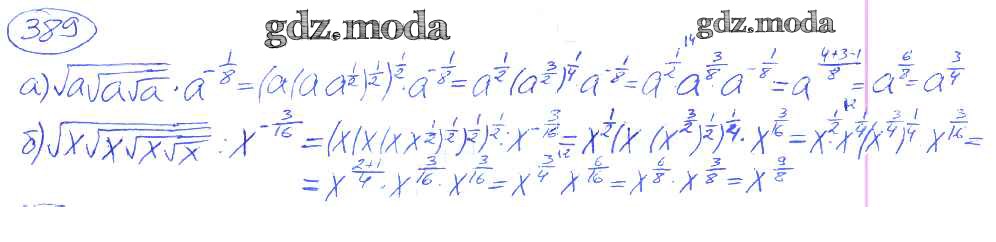 389 gdz.moda gdz.moda
а) √(a√(a√a)) · a^(-1/8) = (a(a a^(1/2))^(1/2))^(1/2) · a^(-1/8) = a^(1/2) (a^(3/2))^(1/4) · a^(-1/8) = a^(1/2) a^(3/8) · a^(-1/8) = a^((4+3-1)/8) = a^(6/8) = a^(3/4)
б) √(x√(x√(x√x))) : x^(-3/16) = (x(x(x x^(1/2))^(1/2))^(1/2))^(1/2) · x^(-3/16) = x^(1/2) (x (x^(3/2))^(1/2))^(1/4) · x^(3/16) = x^(1/2) · x^(1/4) (x^(3/4))^(1/4) x^(3/16) =
= x^((2+1)/4) · x^(3/16) · x^(3/16) = x^(3/4) x^(6/16) = x^(6/8) · x^(3/8) = x^(9/8)